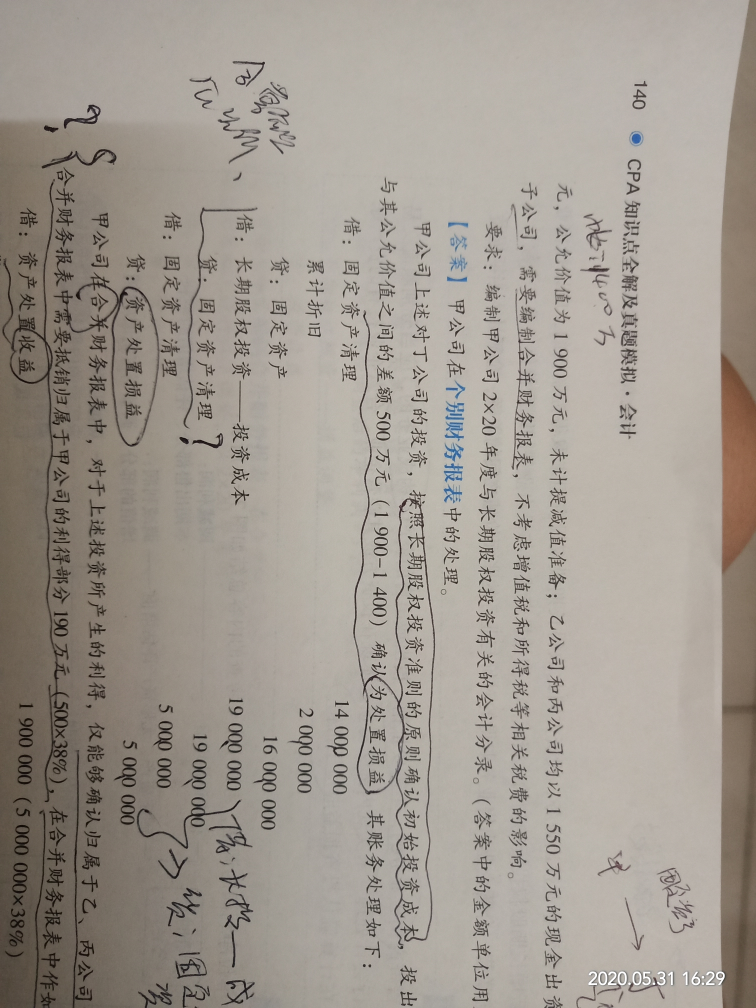 140 ● CPA 知识点全解及真题模拟·会计
元，公允价值为 1 900 万元，未计提减值准备；乙公司和丙公司均以 1 550 万元的现金出资
子公司，需要编制合并财务报表，不考虑增值税和所得税等相关税费的影响。
要求：编制甲公司 2×20 年度与长期股权投资有关的会计分录。（答案中的金额单位用
【答案】甲公司在个别财务报表中的处理。
甲公司上述对丁公司的投资，按照长期股权投资准则的原则确认初始投资成本，投出
与其公允价值之间的差额 500 万元（1 900-1 400）确认为处置损益，其账务处理如下：
借：固定资产清理 14 000 000
累计折旧 2 000 000
贷：固定资产 16 000 000
借：长期股权投资——投资成本 19 000 000
贷：固定资产清理 19 000 000
?
借：固定资产清理 5 000 000
贷：资产处置损益 5 000 000
甲公司在合并财务报表中，对于上述投资所产生的利得，仅能够确认归属于乙、丙公司
合并财务报表中需要抵销归属于甲公司的利得部分 190 万元（500×38%），在合并财务报表中作如
借：资产处置收益 1 900 000（5 000 000×38%）
2020.05.31 16:29